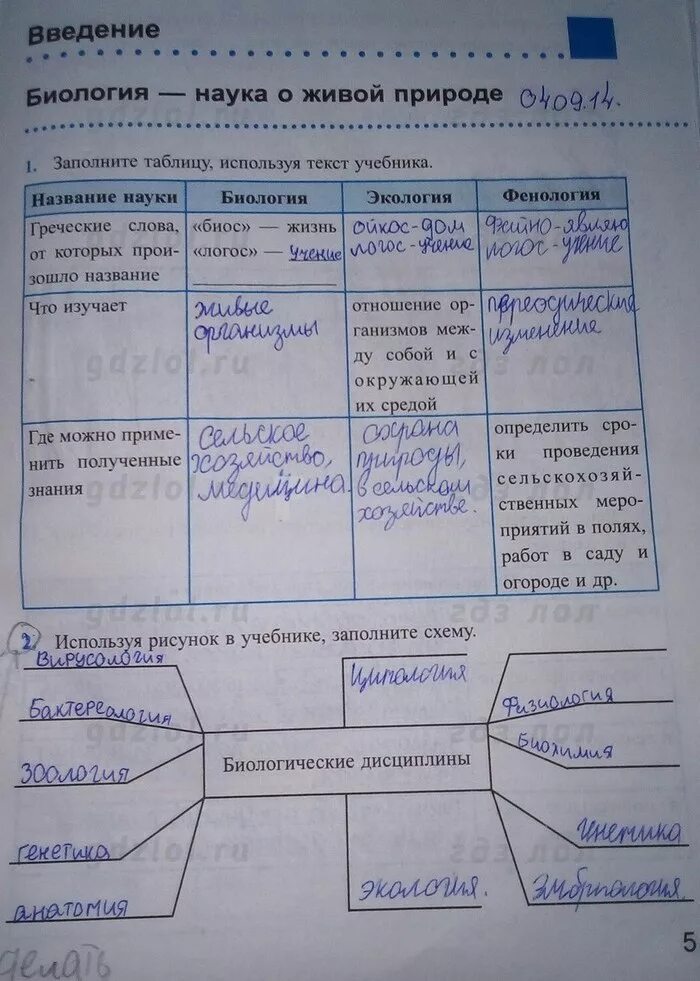 Введение
Биология — наука о живой природе 04.09.14.
1. Заполните таблицу, используя текст учебника.
Название науки Биология Экология Фенология
Греческие слова, от которых произошло название
«биос» — жизнь
«логос» — учение
ойкос-дом
логос-учение
Фейно-являю
логос-учение
Что изучает
живые
организмы
отношение ор-
ганизмов меж-
ду собой и с
окружающей
их средой
переодические
изменение
Где можно приме-
нить полученные
знания
сельское
хозяйство,
медицина.
охрана
природы,
в сельском
хозяйстве.
определить сро-
ки проведения
сельскохозяй-
ственных меро-
приятий в полях,
работ в саду и
огороде и др.
gdzlol.ru гдз лол
gdzlol.ru гдз лол
gdzlol.ru гдз лол
2. Используя рисунок в учебнике, заполните схему.
Вирусология
Бактереология
Зоология
генетика
анатомия
Цитология
Биологические дисциплины
экология.
Физиология
Биохимия
Генетика
Эмбриология.
gdzlol.ru гдз лол
gdzlol.ru гдз лол
5
делать